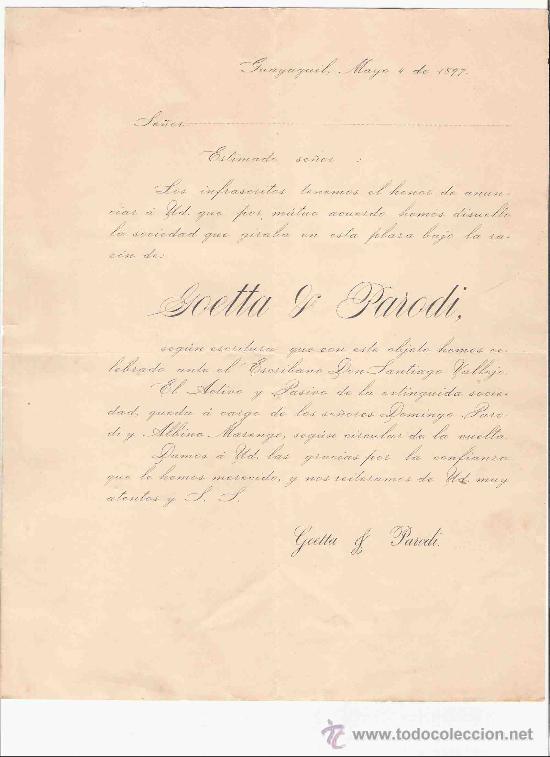 Guayaquil, Mayo 4 de 1897.
Señor
Estimado señor :
Los infrascritos tenemos el honor de anun-
ciar á Ud. que por mútuo acuerdo hemos disuelto
la sociedad que giraba en esta plaza bajo la ra-
zón de:
Goetta & Parodi,
según escritura que con este objeto hemos ce-
lebrado ante el Escribano Don Santiago Vallejo.
El Activo y Pasivo de la extinguida socie-
dad, queda á cargo de los señores Domingo Paro-
di y Albino Marengo, según circular de la vuelta.
Damos á Ud. las gracias por la confianza
que le hemos merecido, y nos reiteramos de Ud. muy
atentos y S. S.
Goetta & Parodi.
www.todocoleccion.net